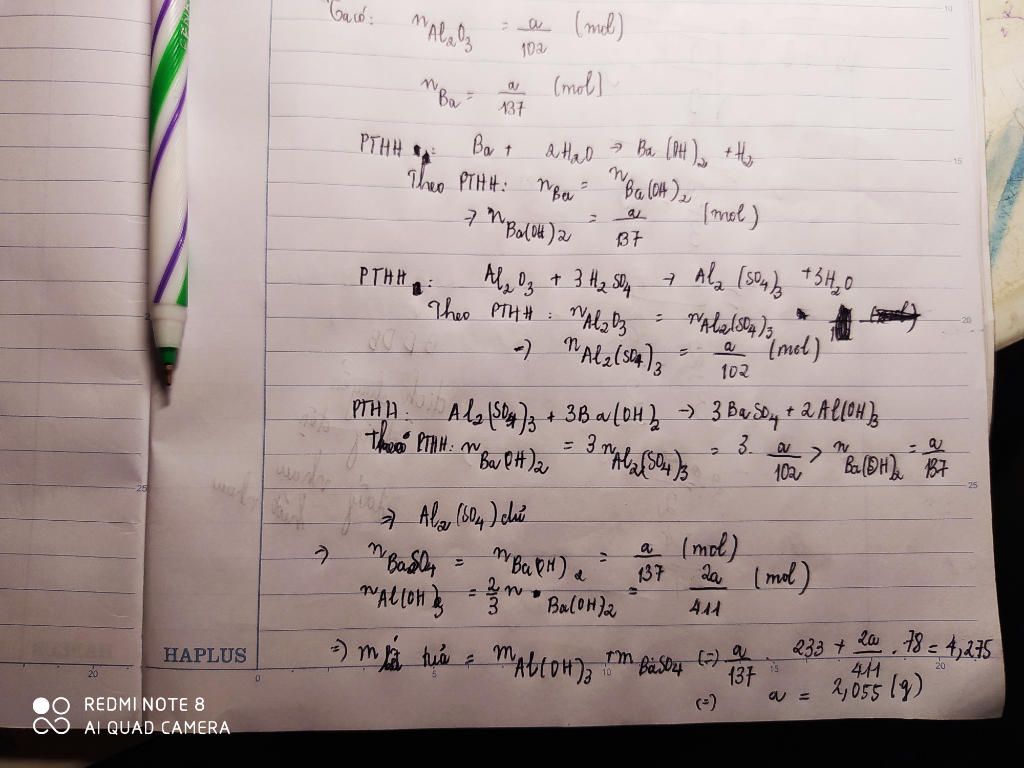 Ta có: n Al₂O₃ = a/102 (mol)
n Ba = a/137 (mol)
PTHH: Ba + 2H₂O → Ba(OH)₂ + H₂
Theo PTHH: n Ba = n Ba(OH)₂
⇒ n Ba(OH)₂ = a/137 (mol)
PTHH: Al₂O₃ + 3H₂SO₄ → Al₂(SO₄)₃ + 3H₂O
Theo PTHH: n Al₂O₃ = n Al₂(SO₄)₃
⇒ n Al₂(SO₄)₃ = a/102 (mol)
PTHH: Al₂(SO₄)₃ + 3Ba(OH)₂ → 3BaSO₄ + 2Al(OH)₃
Theo PTHH: n Ba(OH)₂ = 3 n Al₂(SO₄)₃ = 3. a/102 > n Ba(OH)₂ = a/137
⇒ Al₂(SO₄) dư
⇒ n BaSO₄ = n Ba(OH)₂ = a/137 (mol)
n Al(OH)₃ = 2/3 n Ba(OH)₂ = 2a/411 (mol)
⇒ m tủa = m Al(OH)₃ + m BaSO₄ (=) a/137 . 233 + 2a/411 . 78 = 4,275
(=) a = 2,055 (g)
HAPLUS
10
15
20
25
25
20
0
5
10
15
20
REDMI NOTE 8
AI QUAD CAMERA